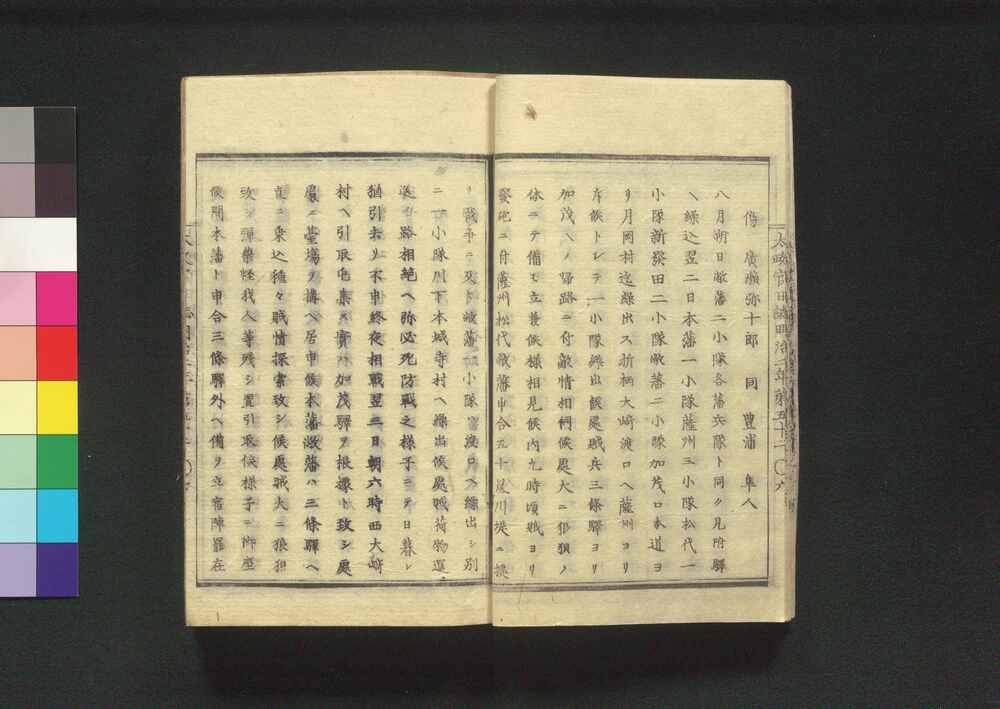 傷 廣瀬弥十郎 同 豊浦 隼人
八月朔日敝藩二小隊各藩兵隊ト同ク見附驛
ヘ繰込翌二日本藩一小隊薩州三小隊松代一
小隊新發田二小隊敝藩二小隊加茂口本道ヨ
リ月岡村迄繰出ス折柄大崎渡口ヘ薩州ヨリ
斥候トシテ一小隊繰出候處賊兵三條驛ヨリ
加茂ヘノ歸路ニ付敵情相伺候處大ニ狼狽ノ
体ニテ備モ立兼候様相見候内九時頃賊ヨリ
發砲ニ付薩州松代敝藩申合五十嵐川堤ニ據
リ戰爭ニ及ト敝藩一小隊ハ渡口ヘ繰出シ別
ニ一小隊川下本城寺村ヘ繰出候處賊荷物運
送ノ路相絶ヘ弥必死防戰之様子ニテ日暮レ
猶引去リ不申終夜相戰翌三日朝六時西大崎
村ヘ引取屯集ス賓ハ加茂驛ヲ根據ト致シ處
處ニ臺場ヲ構ヘ居申候本藩敝藩ハ三條驛ヘ
直ニ乗込種々賊情探索致シ候處賊大ニ狼狽
致シ彈藥怪我人等殘シ置引取候様子ニ御座
候間本藩ト申合三條驛外ヘ備ヲ立宿陣罷在